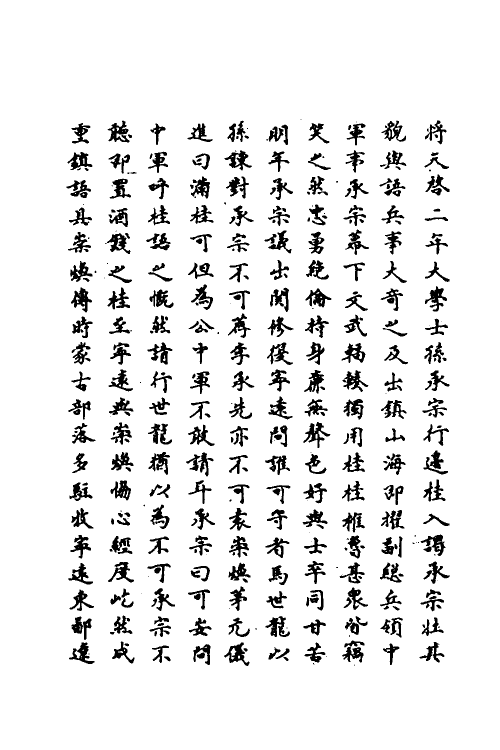 將天啓二年大學士孫承宗行邊桂入謁承宗壯其
貌與語兵事大奇之及出鎮山海即擢副總兵領中
軍事承宗幕下文武輻輳獨用桂桂椎魯甚衆咸竊
笑之然忠勇絶倫持身廉無聲色好與士卒同甘苦
明年承宗議出關修復寧遠問誰可守者馬世龍以
孫諫對承宗不可薦李承先亦不可袁崇煥茅元儀
進曰滿桂可但為公中軍不敢請耳承宗曰可安問
中軍呼桂語之慨然請行世龍猶以為不可承宗不
聽即置酒餞之桂至寧遠與崇煥協心經度屹然成
重鎮語具崇煥傳時蒙古部落多駐牧寧遠東鄙遼